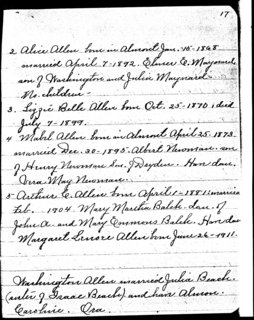 17
2 Alice Allen born in Almont Jan. 15-1868
married April 7-1892. Elmer E. Maynard
son of Washington and Julia Maynard-
No children-
3. Lizzie Belle Allen born Oct. 25-1870; died
July 7-1899.
4 Mabel Allen born in Almont April 25-1873.
married Dec. 30-1895. Albert Newman- son
of Henry Newman Dryden. Have dau.
Ora May Newman.
5 Arthur E. Allen born April 1-1881: married
Feb. 1904. Mary Martha Balch- dau. of
John A. and Mary Emmons Balch. Have dau
Margaret Lenore Allen born June 26-1911.
Washington Allen married Julia Beach
(sister of Isaac Beach) and have Almon.
Caroline. Ora.